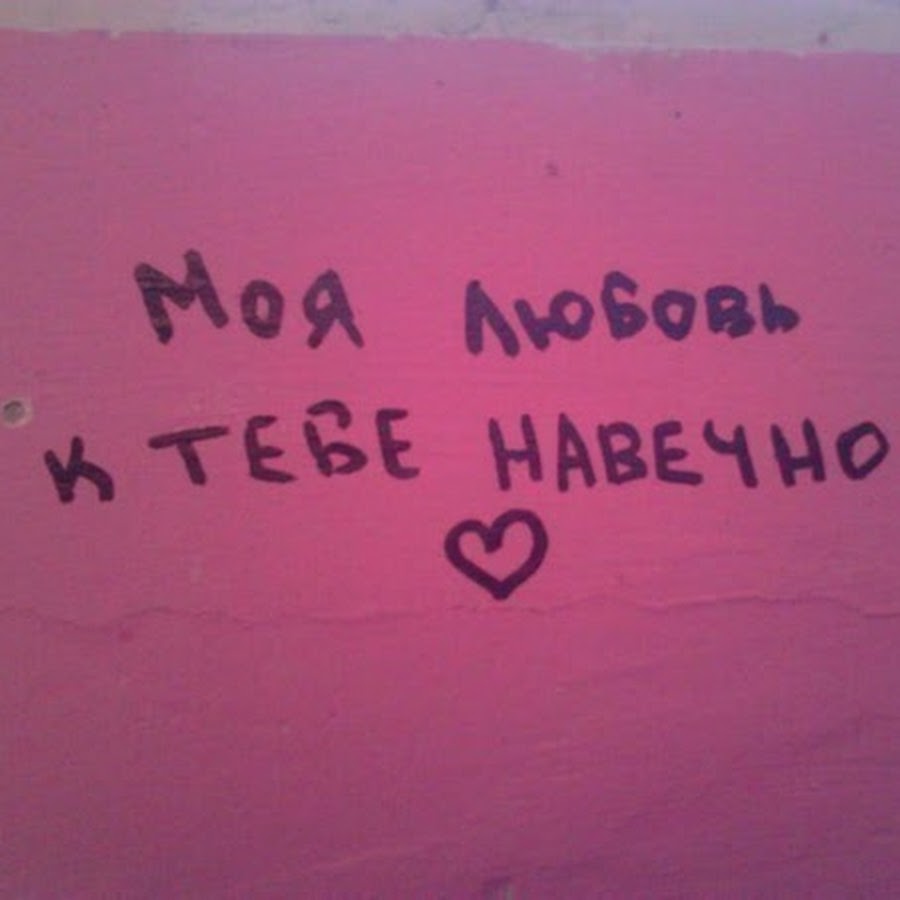 Моя любовь
к ТЕБЕ НАВЕЧНО